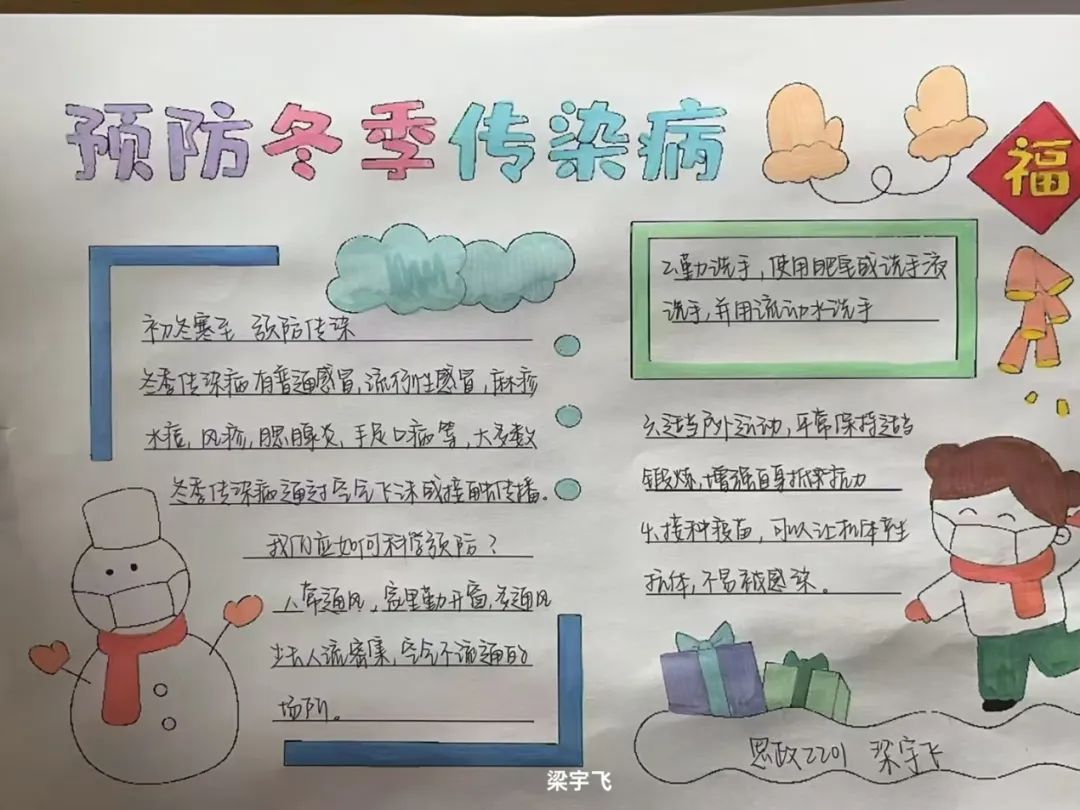 预防冬季传染病
福
初冬寒至 预防传染
冬季传染病有普通感冒,流行性感冒,麻疹
水痘,风疹,腮腺炎,手足口病等,大多数
冬季传染病通过空气飞沫或接触传播。
我们应如何科学预防?
1、常通风,家里勤开窗,多通风
少去人流密集,空气不流通的
场所。
2、勤洗手,使用肥皂或洗手液
洗手,并用流动水洗手
3、适当户外运动,平常保持适当
锻炼,增强自身抵抗力
4、接种疫苗,可以让机体产生
抗体,不易被感染。
思政2201 梁宇飞
梁宇飞